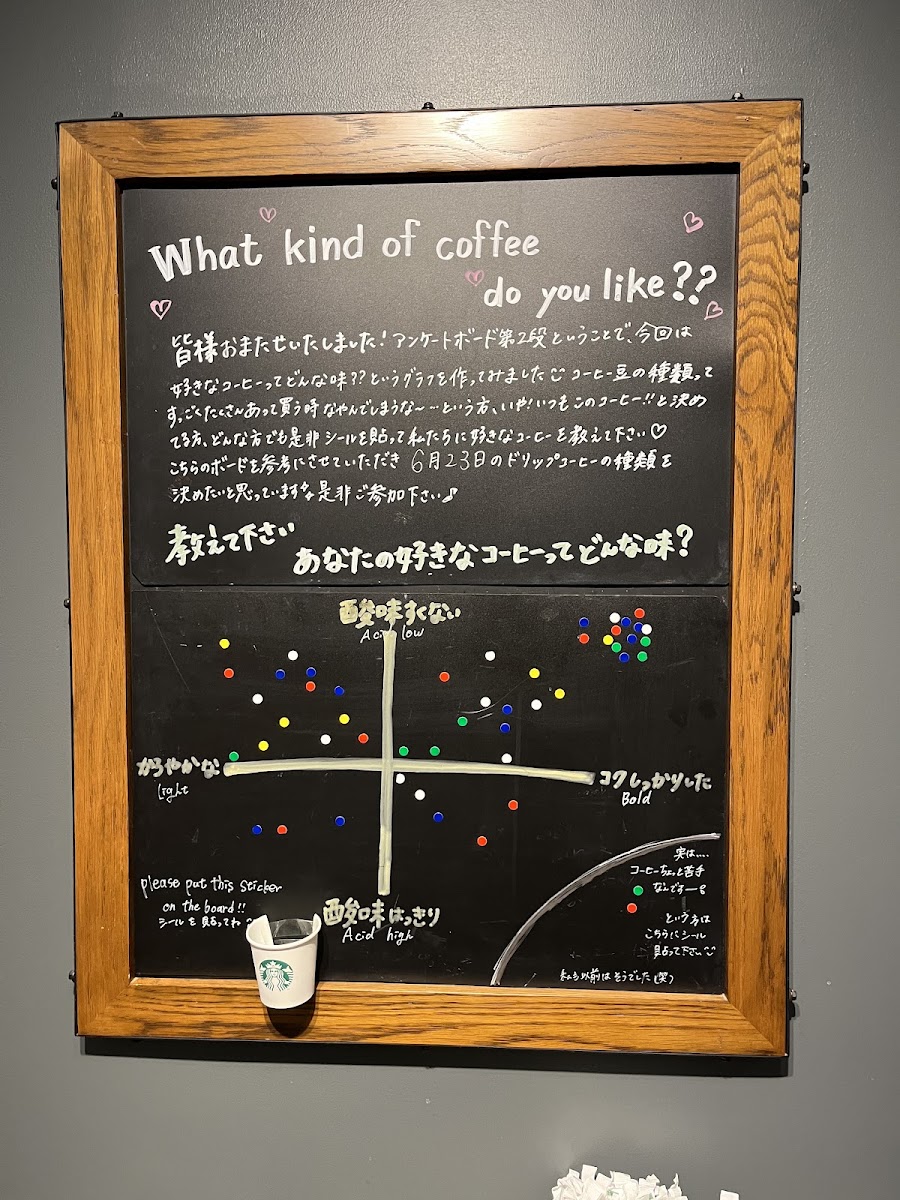 What kind of coffee
do you like??
皆様おまたせいたしました！アンケートボード第2段ということで、今回は
好きなコーヒーってどんな味??というグラフを作ってみました コーヒー豆の種類って
すっごくたくさんあって買う時なやんでしまうな〜…という方、いや！いつもこのコーヒー!!と決め
てる方、どんな方でも是非シールを貼って私たちに好きなコーヒーを教えて下さい♡
こちらのボードを参考にさせていただき 6月23日のドリップコーヒーの種類を
決めたいと思っています 是非ご参加下さい♪
教えて下さい
あなたの好きなコーヒーってどんな味？
酸味すくない
Acid low
かろやかな
Light
コクしっかりした
Bold
実は....
コーヒーちょっと苦手
なんですー
という方は
こちらにシール
貼って下さい
please put this sticker
on the board!!
シールを貼ってね
酸味はっきり
Acid high
私も以前はそうでした(笑)